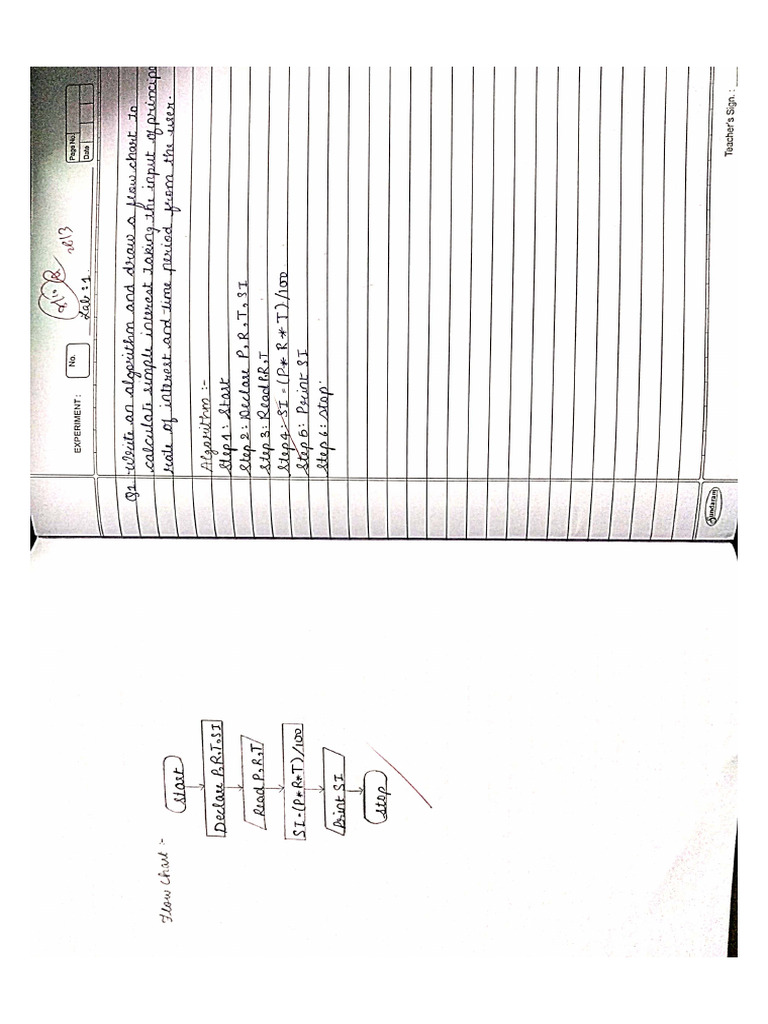 EXPERIMENT: No. Page No.
Date
Lab: 1.
Q1. Write an algorithm and draw a flow chart to
calculate simple interest taking the input of principa
rate of interest and time period from the user.
Algorithm :-
Step 1: Start
Step 2: Declare P, R, T, SI
Step 3: Read P, R, T
Step 4: SI = (P* R* T)/100
Step 5: Print SI
Step 6: Stop.
Sundaram
Teacher's Sign.:
Flow Chart :-
Start
Declare P, R, T, SI
Read P, R, T
SI = (P*R*T)/100
Print SI
Stop